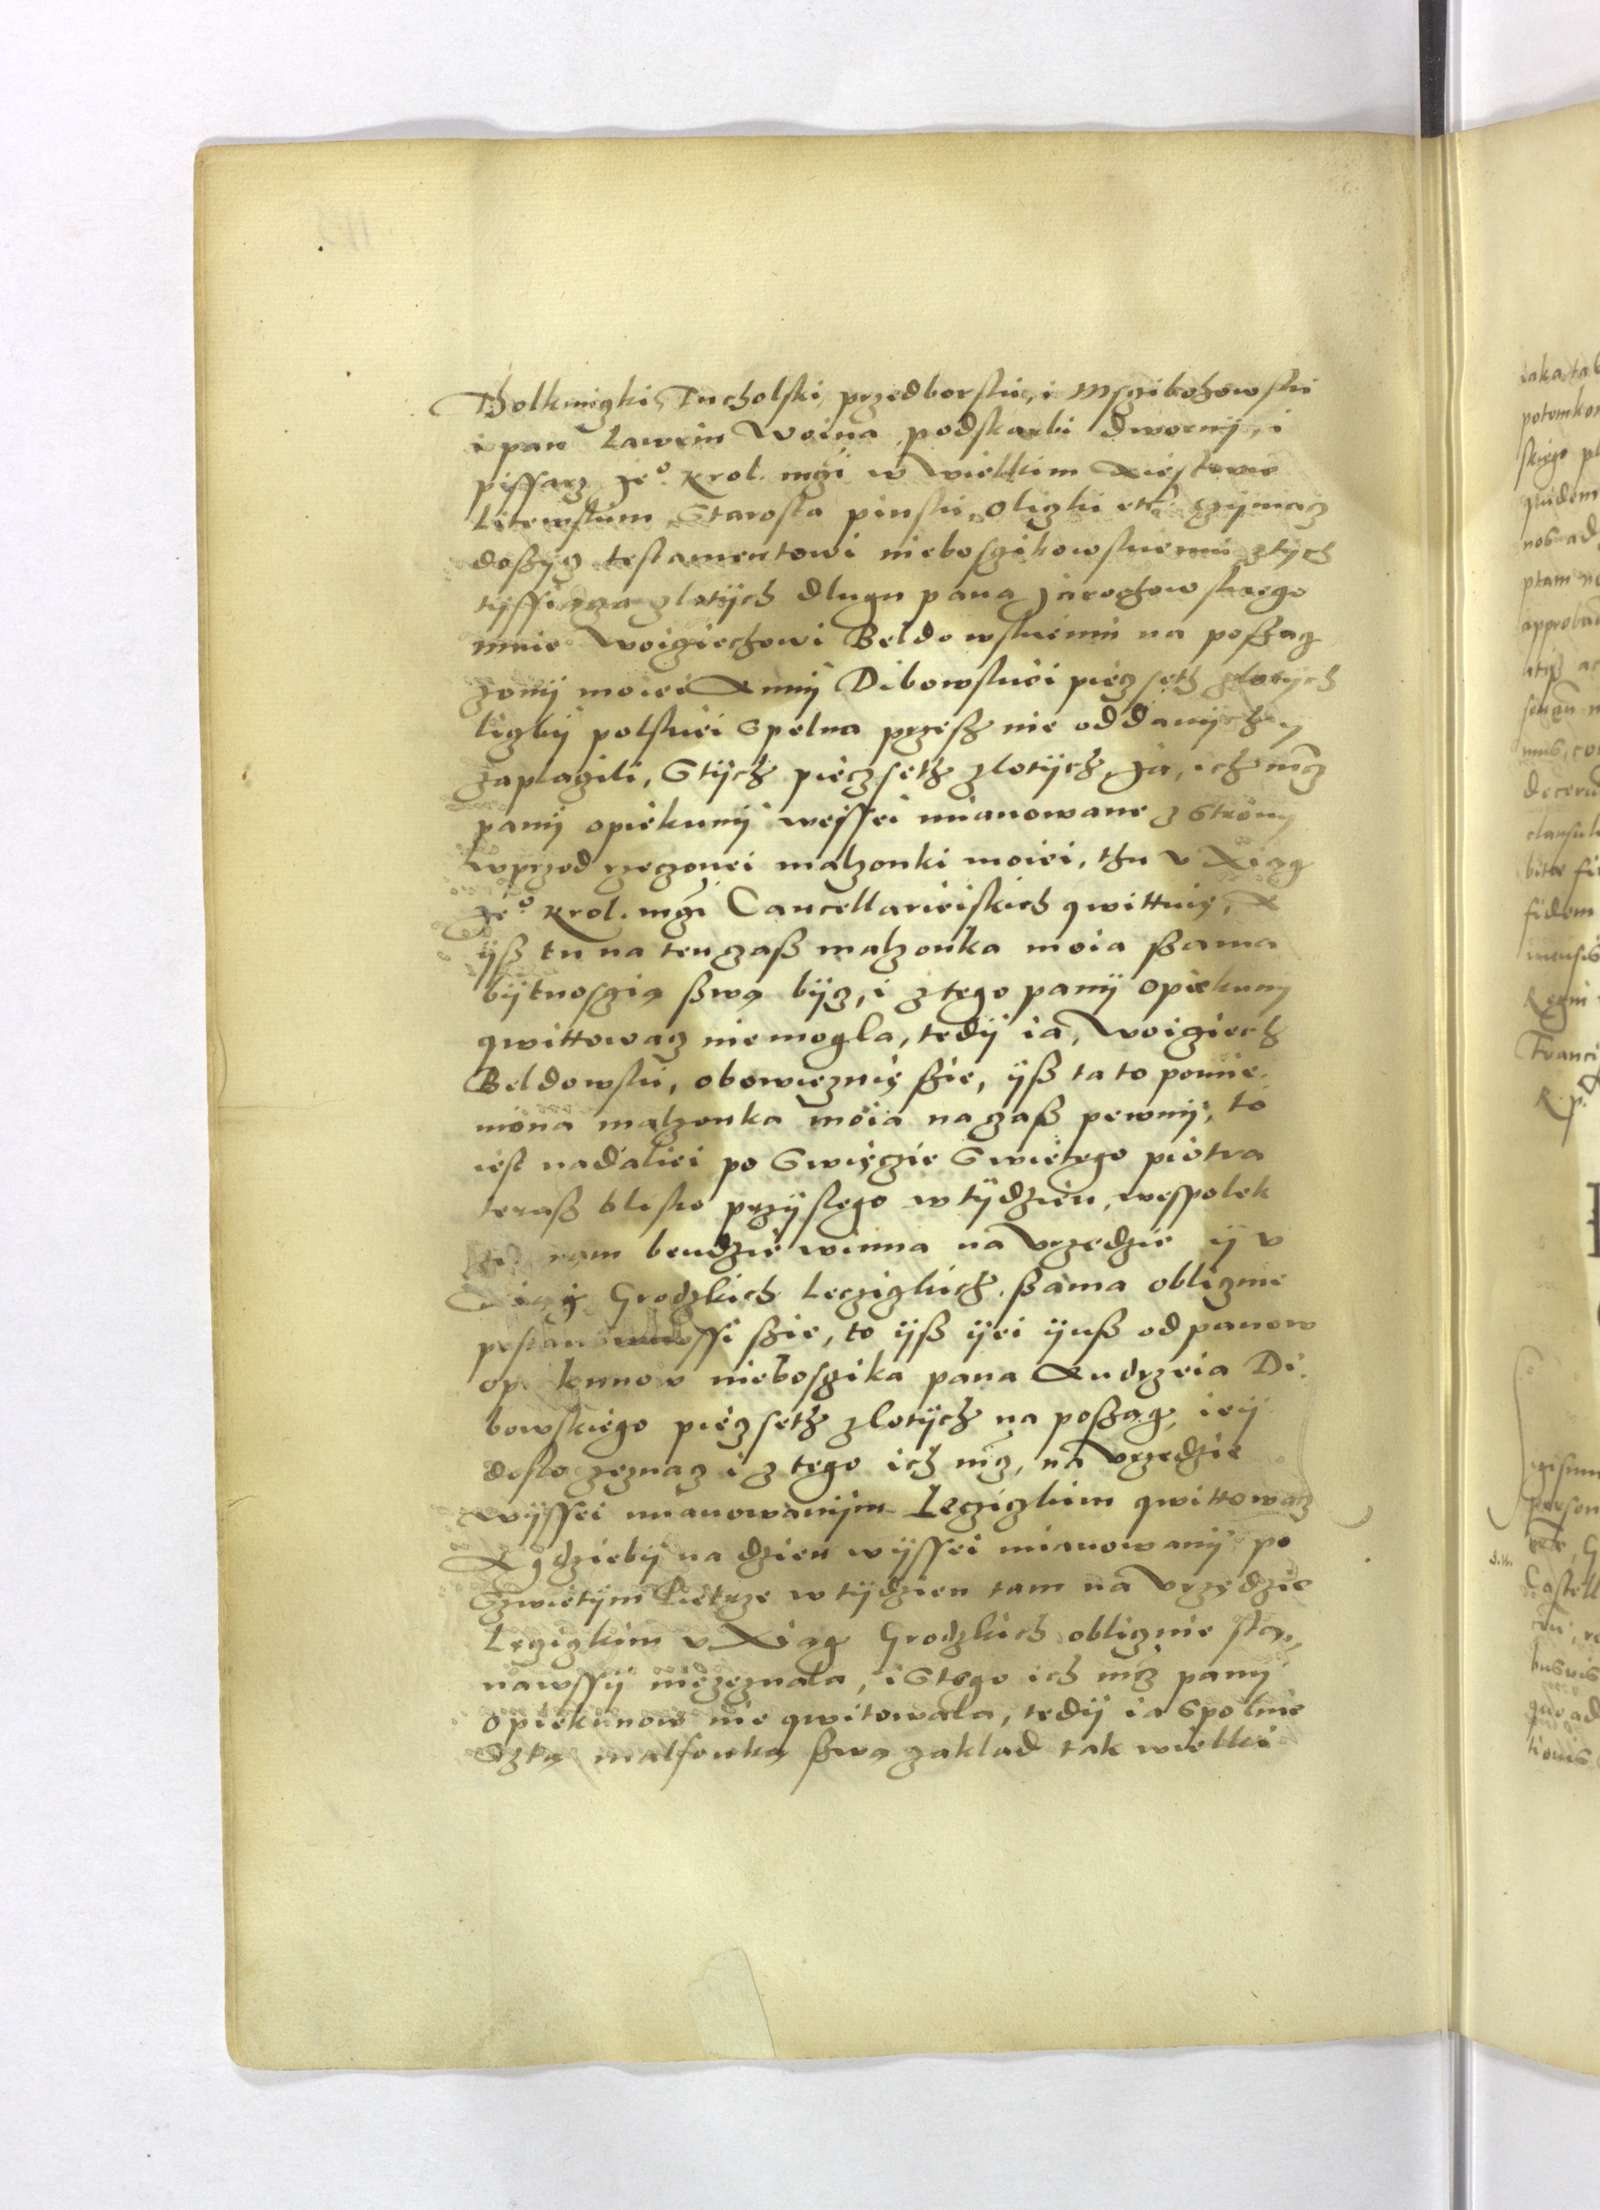 Tholkmiczki, Tucholski, przedborski, i Msczibohowski
i pan Lawrin Woina podskarbi dworny, i
pissarz Jeº Krol. mczi w wielkim Xiestwie
Litewskim, Starosta pinski, Oliczki etc. czyniącz
dosszycz testamentowi nieboszikowskiemu z tych
tyssiącza zlotych dlugu pana Jarochowskiego
mnie Woiciechowi Beldowskiemu na possag
zony moiei Anny Dibowskiei pięczseth zlotych
liczby polskiei spelna przesz nie oddanych
zaplaczili, S tych pięczseth zlotych Ja, ich mcz
pany opiekuny weissei mianowane z strony
wprzod rzeczonei malzonki moiei, thu v Xiąg
Jeº Krol. mczi Cancellarieiskich qwittuię, A
ysz tu na ten czasz malzonka moia szama
bytnosczią szwą bycz, i z tego pany opiekuny
qwittowacz nie mogla, tedy ia, Woiciech
Beldowski, obowięzuię szie, ysz ta to pomie-
niona malzonka moia na czasz pewny, to
iest nadaliei po Swięczie Swiętego piotra
terasz blisko przyslego w tydzien, wespolek
ze mną bendzie winna na vrzędzie y v
Xiąg Grodzkich Lęczyczkich szama oblicznie
postanowiwssi szie, to ysz yei yusz od panow
opiekunow nieboszika pana Andrzeia Di-
bowskiego pięczseth zlotych na possag ieij
doslo zeznacz i z tego ich mcz, na vrzędzie
wyssei mianowanym Lęczyczkim qwittowacz
A gdzieby na dzien wyssei mianowany po
Szwiętym Pietrze w tydzien tam na vrzędzie
Lęczyczkim v Xiąg Grodzkich oblicznie sta-
nąwssy nie zeznala, i S tego ich mcz pany
opiekunow nie qwitowala, tedy ia spolnie
Sztą malsonką szwą zaklad tak wielki